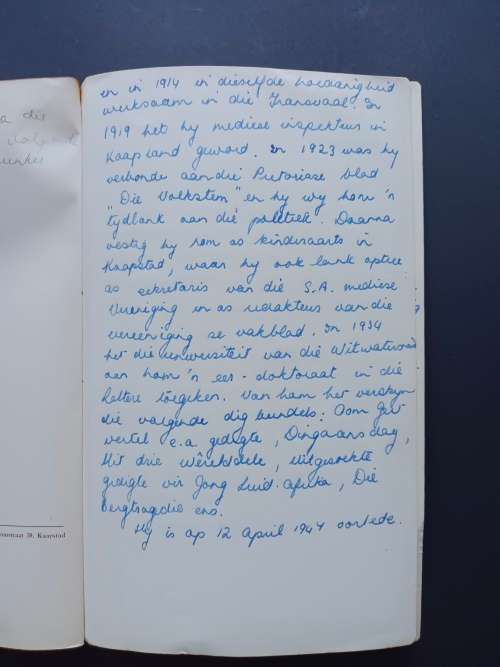 a die
en in 1914 in dieselfde hoedanigheid
werksaam in die Transvaal. In
1919 het hy mediese inspekteur in
Kaapland geword. In 1923 was hy
verbonde aan die Pretoriase blad
"Die Volkstem" en hy wy hom 'n
tydlank aan die politiek. Daarna
vestig hy hom as kinderarts in
Kaapstad, waar hy ook lank optree
as sekretaris van die S.A. mediese
Vereniging en as redakteur van die
vereeniging se vakblad. In 1934
het die universiteit van die Witwatersrand
aan hom 'n eer-doktoraat in die
lettere toegeken. Van hom het verskyn
die volgende digbundels: Oom Gert
vertel e.a gedigte, Dingaansdag,
Uit drie Wêrelddele, Uitgesoekte
gedigte vir Jong Suid-Afrika, Die
Bergtragedie ens.
Hy is op 12 April 1947 oorlede.
straat 38, Kaapstad